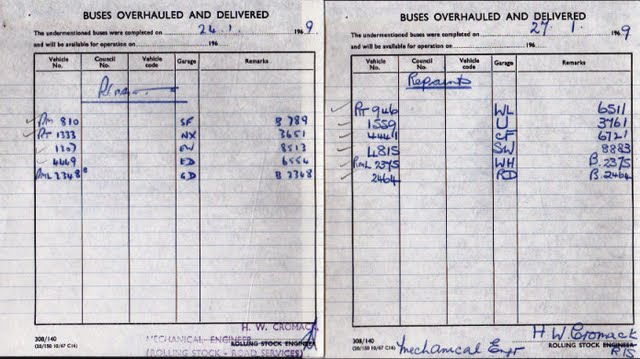 BUSES OVERHAULED AND DELIVERED
The undermentioned buses were completed on 24. 1. 1969.
and will be available for operation on 196
Vehicle No. Council No. Vehicle code Garage Remarks
RM 810 SF B 789
RT 1333 NX 3651
8513
4469 ED 6554
RML 2348 GD B 2348
H. W. CROMACK
MECHANICAL ENGINEER ROLLING STOCK ENGINEER
(ROLLING STOCK - ROAD SERVICES)
308/140
(20/150 10/67 C16)
BUSES OVERHAULED AND DELIVERED
The undermentioned buses were completed on 27. 1. 1969
and will be available for operation on 196
Vehicle No. Council No. Vehicle code Garage Remarks
Repaints
RT 946 WL 6511
1559 U 3761
4441 CF 6721
4815 SW 8883
RML 2375 WH B. 2375
2464 RD B. 2464
H W Cromack
308/140 ROLLING STOCK ENGINEER
(20/150 10/67 C16) Mechanical Engr